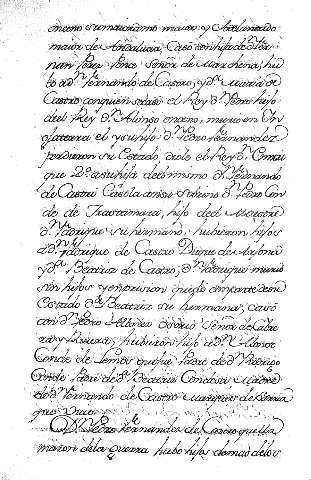 onceno su maiordomo maior y Adelantado
maior de Andalucia, Casó con hija de Dn. Fer
nan Perez Ponce Señor de Marchena, hu
bo a dn. Fernando de Castro, y da. Maria de
Castro con quien se casó el Rey dn. Pedro hijo
del Rey dn. Alonso onceno, murió en In
glaterra el y su hijo dn. Pedro Fernandez
perdieron su Estado, diolo el Rey dn. Enrri
que 2º. a su hija del mismo dn. Fernando
de Castro Casola con su sobrino dn. Pedro Con
de de Trastamara, hijo del Maestre
dn. Fadrique su hermano, hubieron hijos
a dn. Fadrique de Castro Duque de Arjona
y da. Beatriz de Castro, dn. Fadrique murió
sin hijos y en prision quedó con parte de su
Estado da. Beatriz su hermana, casó
con dn. Pedro Alvarez Osorio Señor de Cabre
ra y Rivera, hubieron hijo a dn. Alonso
Conde de Lemos que fue Padre de dn. Rodrigo
Conde Padre de da. Beatriz Condesa Madre
de dn. Fernando de Castro Marques de Sarria
que vivio.
Dn. Pedro Fernandez de Castro que lla
maron de la Guerra hubo hijos demas de los